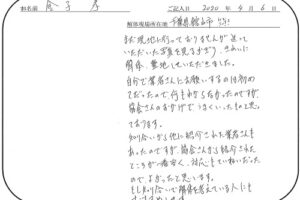 お名前 金子 孝 ご記入日 2020年4月6日
解体現場所在地 千葉県館山市
まだ現地に行っておりませんが送って
いただいた写真を見るかぎり、きれいに
解体、整地していただきました。
自分で業者さんにお願いするのは初め
てだったので、何もわからなかったのですが
協会さんのおかげでうまくいったものと思っ
ております。
知り合いから他に紹介された業者さんも
あったのですが、協会さんから紹介された
ところが一番安く、対応もていねいだった
のでよかったと思います。
もし知り合いで解体を考えている人にも